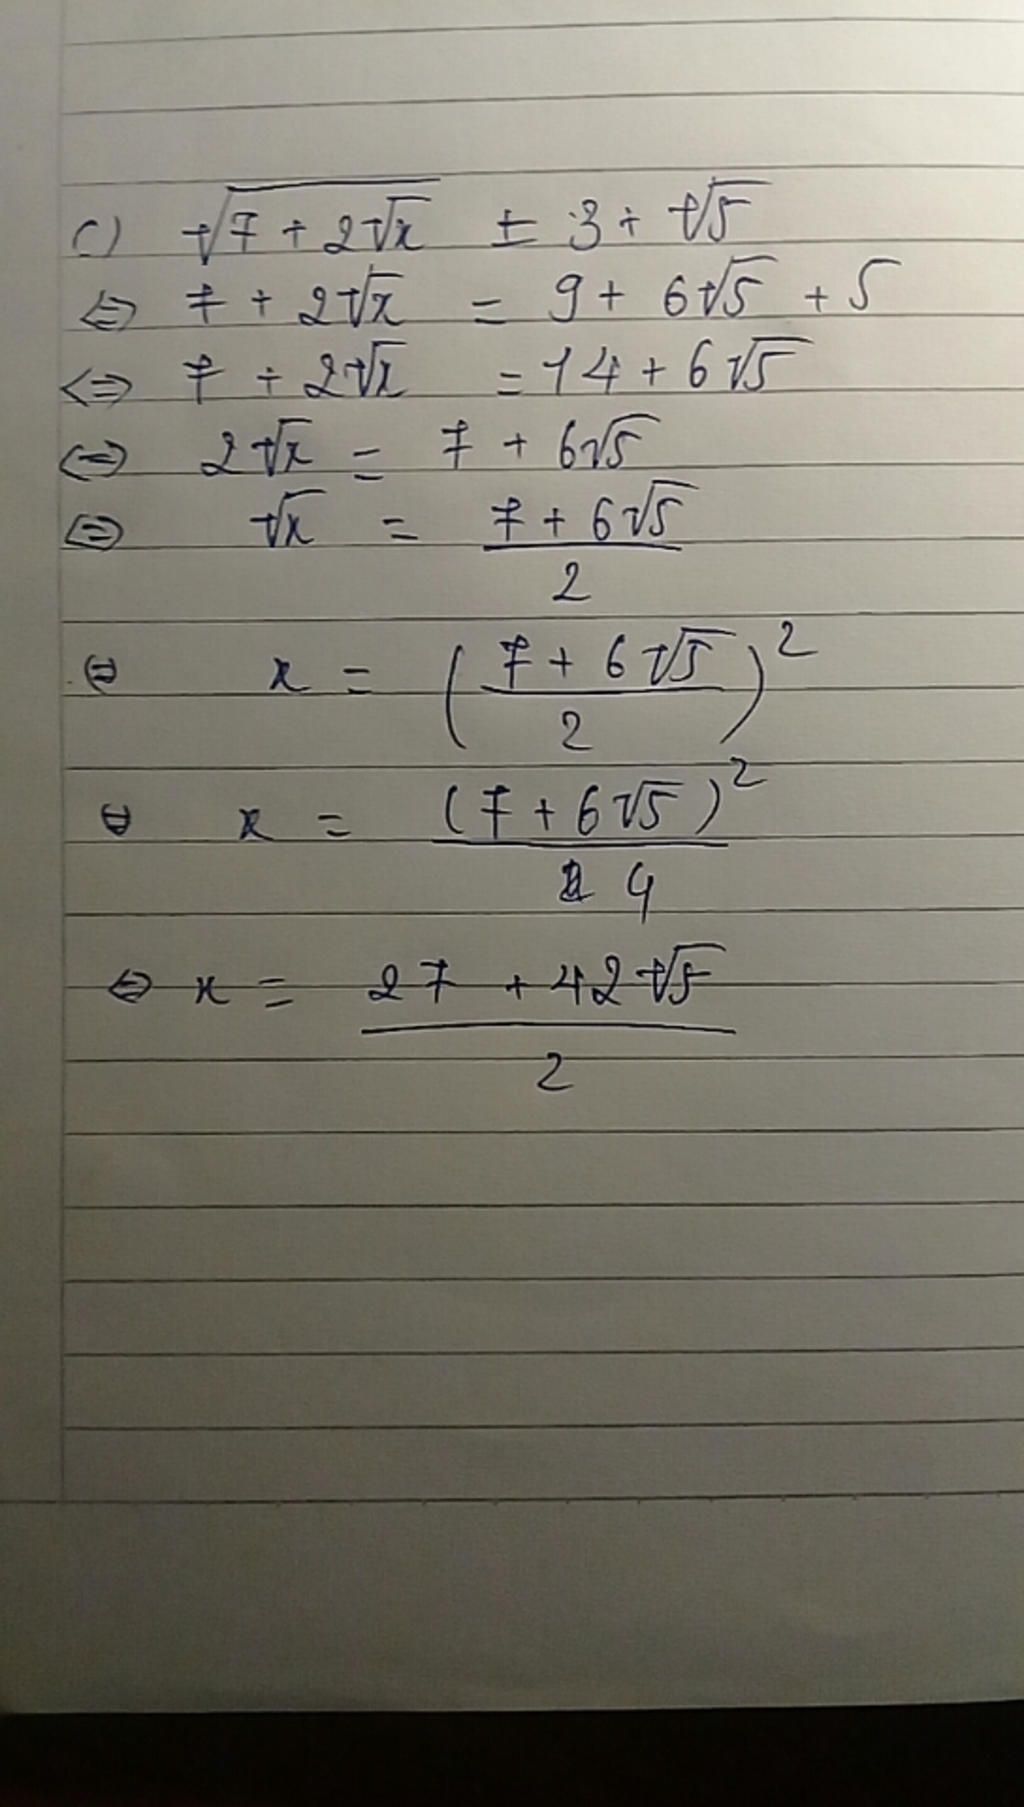 c) √(7 + 2√x) = 3 + √5
⇔ 7 + 2√x = 9 + 6√5 + 5
⇔ 7 + 2√x = 14 + 6√5
⇔ 2√x = 7 + 6√5
⇔ √x = (7 + 6√5)/2
⇔ x = ((7 + 6√5)/2)²
⇔ x = (7 + 6√5)²/4
⇔ x = (27 + 42√5)/2